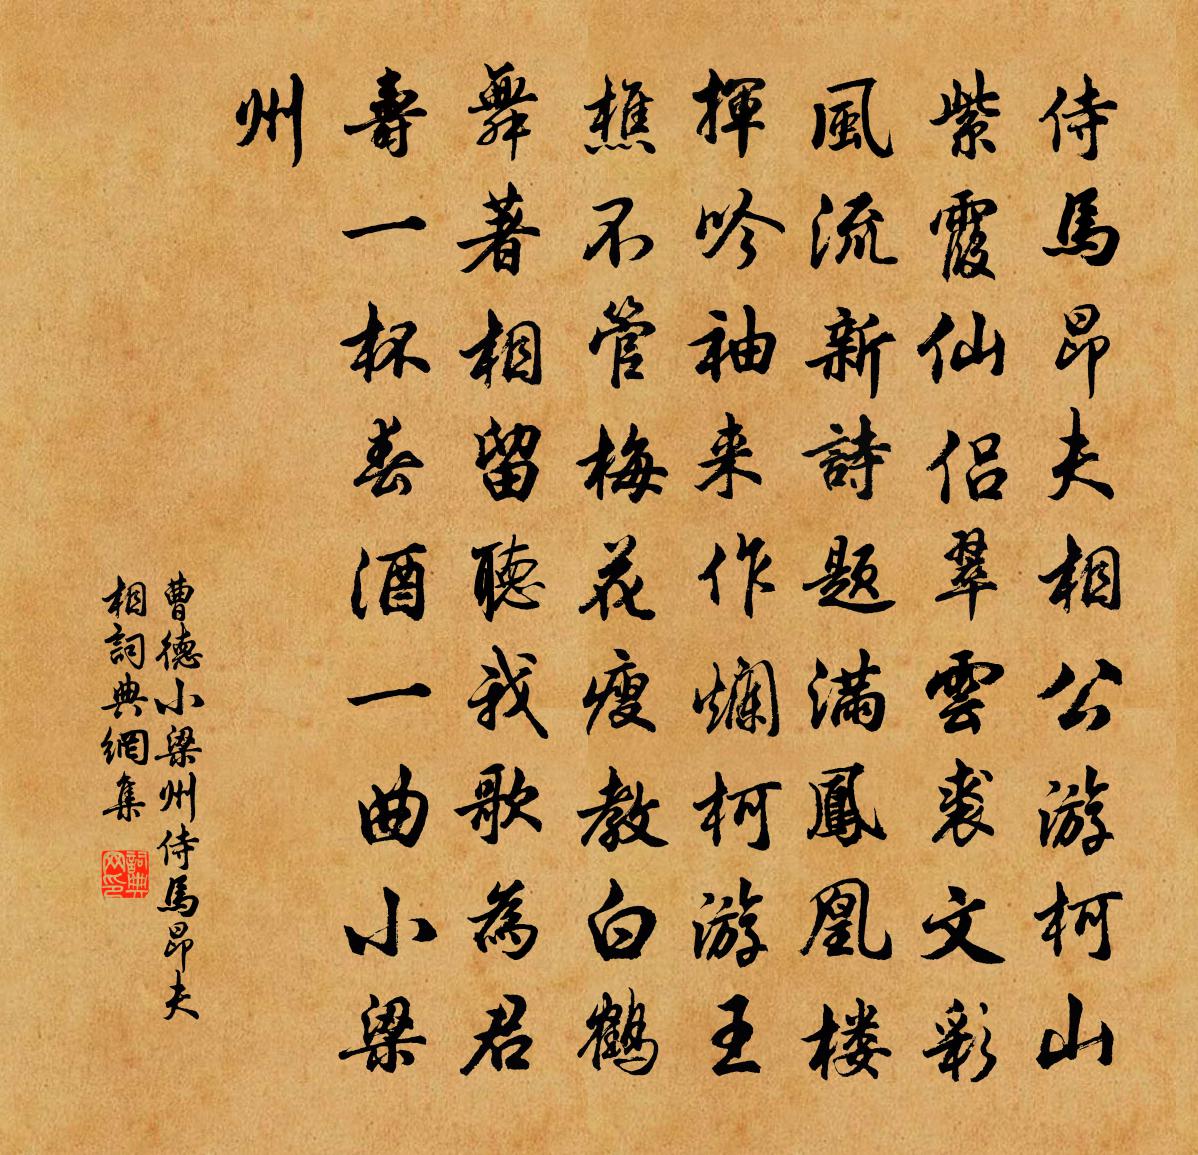 侍馬昂夫相公游柯山
紫霞仙侶翠雲裘文彩
風流新詩題滿鳳凰樓
揮吟袖来作爛柯游王
樵不管梅花瘦教白鶴
舞著相留聽我歌為君
壽一杯春酒一曲小梁
州
曹德小梁州侍馬昂夫
相詞典網集
詞典網印